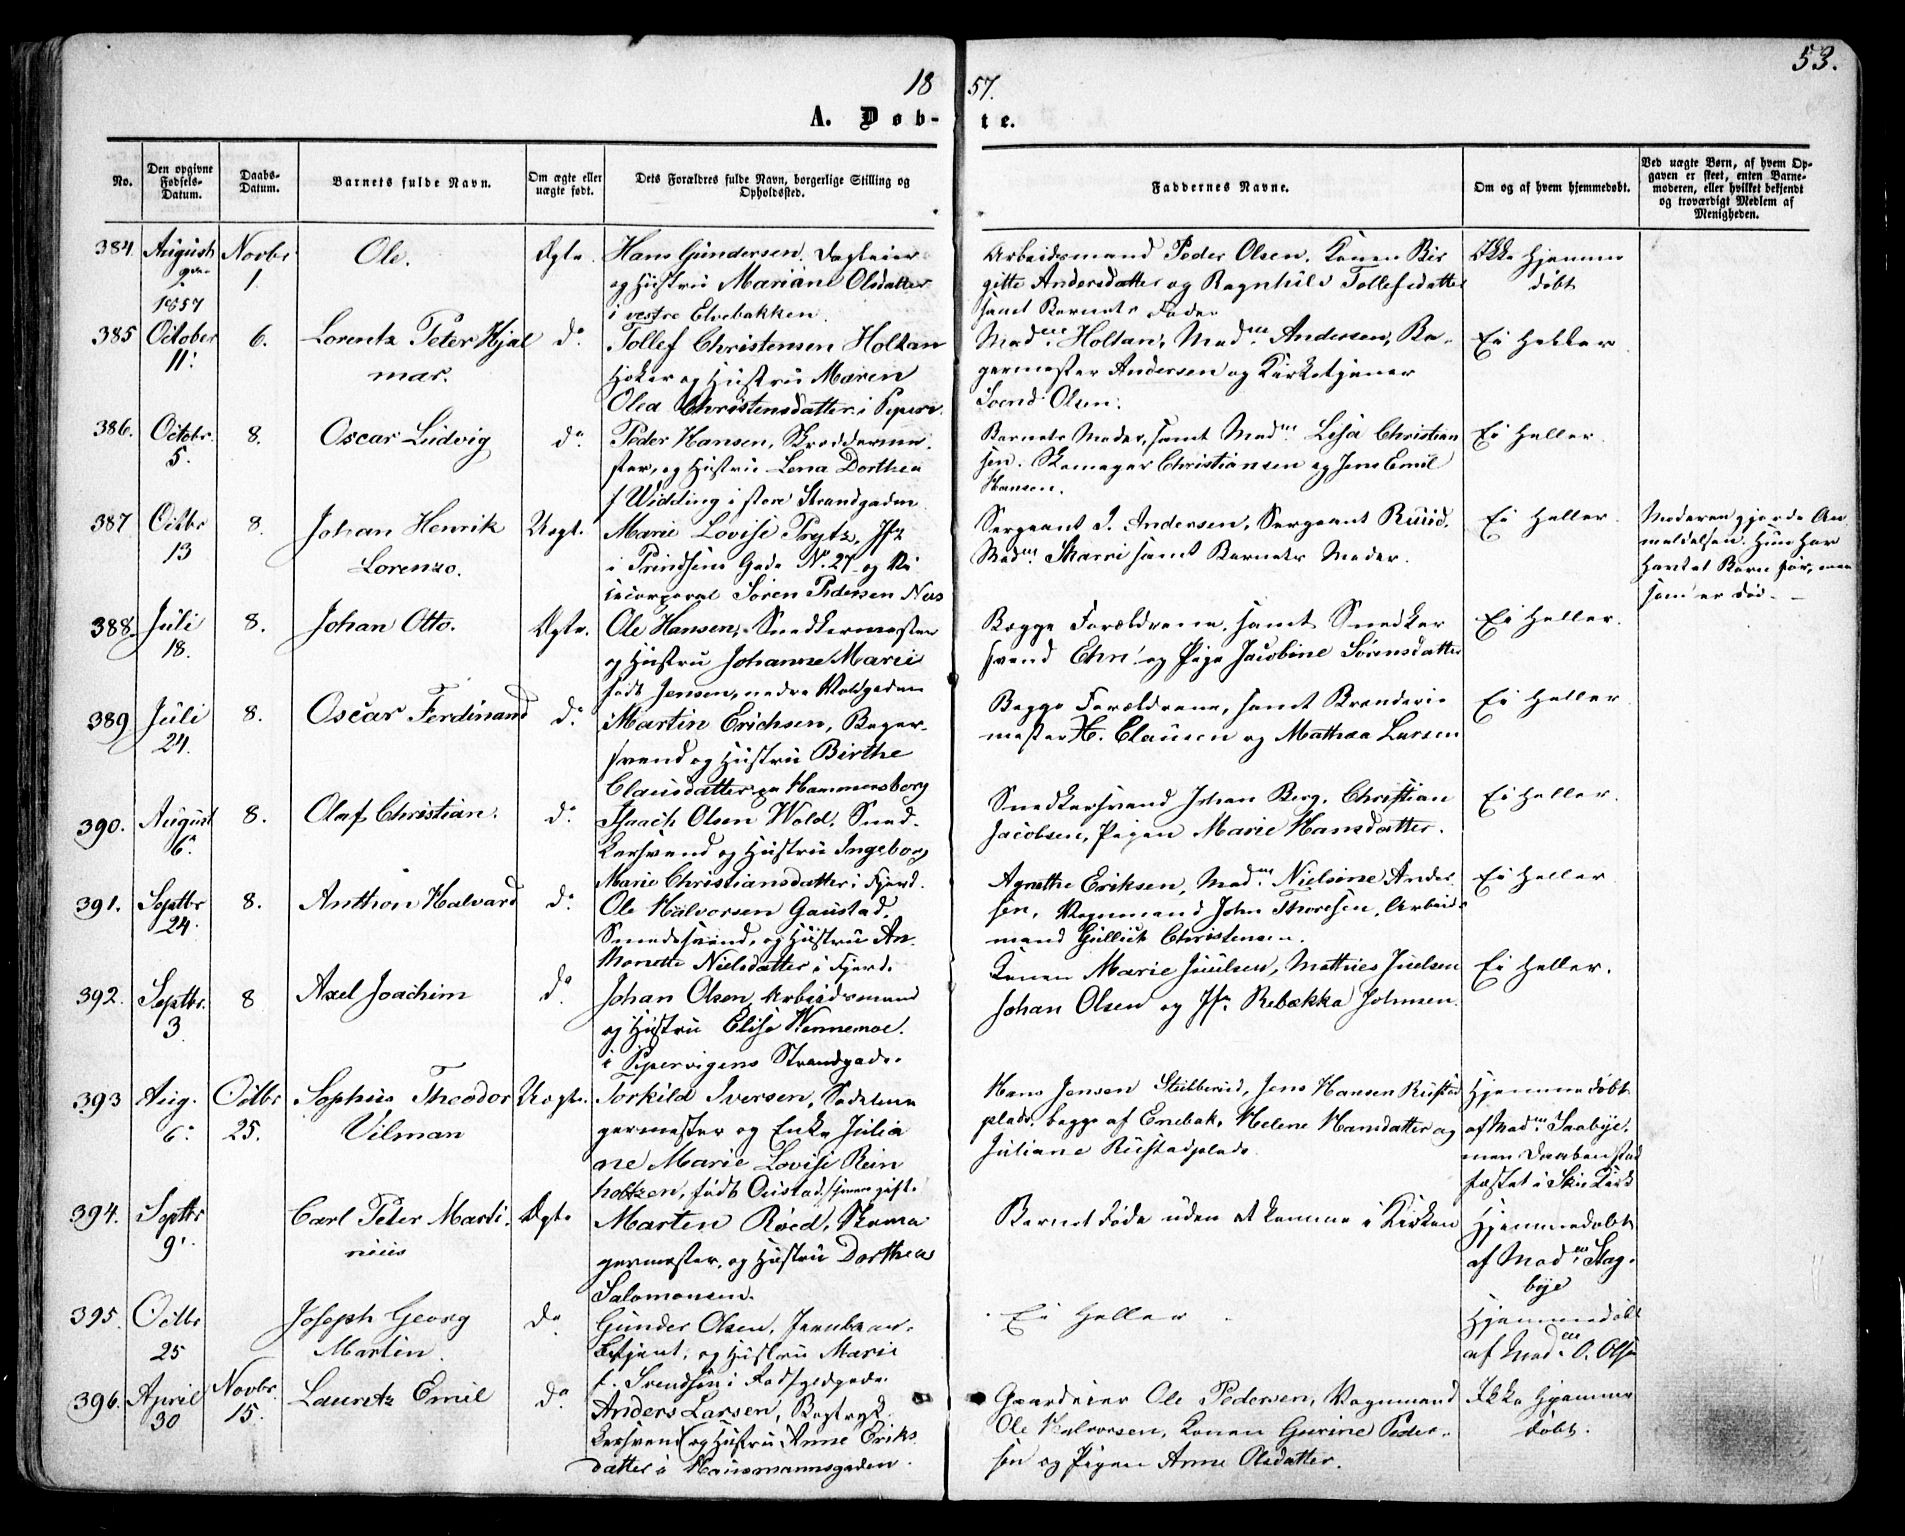 53.
18 57.
A. Døb- te.
No.
Den opgivne Fødsels-Datum.
Daabs-Datum.
Barnets fulde Navn.
Om ægte eller uægte født.
Dets Forældres fulde Navn, borgerlige Stilling og Opholdssted.
Faddernes Navne.
Om og af hvem hjemmedøbt.
Ved uægte Børn, af hvem Opgaven er skeet, enten Barnemoderen, eller hvilket bekjendt og troværdigt Medlem af Menigheden.
384. August Novbr Ole. Ægte. Hans Gundersen, Dagleier
1 og Hustru Mariane Olsdatter
1857 i vestre Elvebakken.
Arbeidsmand Peder Olsen, Konen Bir
gitte Andersdatter og Ragnhild Tollefsdatter
samt Barnets Fader
Ikke hjemme
døbt
385 October 6. Lorentz Peter Hjal do Tollef Christensen Holtan
11. mar. Høker og Hustru Maren
Olea Christensdatter i Piperv.
Madm Holtan, Madm Andersen, Ba-
germester Andersen og Kirketjener
Svend Olsen.
Ei heller
386. Octobr. 8. Oscar Ludvig do Peder Hansen, Skreddermei
5. ster, og Hustru Lena Dorthea
f Widding i store Strandgaden
Barnets Moder, samt Madm Lisa Christian
sen, Skomager Christiansen og Jens Emil
Hansen.
Ei heller.
387 Octbr 8. Johan Henrik Uægt. Marie Lovise Prytz, Jfr
13 Lorenzo. i Prindsens Gade No. 27 og Vi
cecorporal Søren Pedersen Næs
Sergeant J. Andersen, Sergeant Ruud,
Madm Skarri samt Barnets Moder.
Ei heller.
Moderen gjorde An
meldelsen. Hun har
havt et Barn før, men
som er død.
388. Juli 8. Johan Otto. Ægte. Ole Hansen, Snedkermester
18. og Hustru Johanne Marie
født Jensen, nedre Voldgaden
Begge Forældrene, samt Snedker
svend Ehn og Pige Jacobine Sørensdatter
Ei heller.
389 Juli 8. Oscar Ferdinand do Martin Erichsen, Bager-
24. svend og Hustru Birthe
Clausdatter paa Hammersborg
Begge Forældrene, samt Brænderi-
mester H. Clausen og Mathea Larsen
Ei heller
390. August 8. Olaf Christian. do Isaach Olsen Wold, Sned-
6. kersvend og Hustru Ingeborg
Marie Christiansdatter i Fjerd.
Snedkersvend Johan Berg, Christian
Jacobsen, Pigen Marie Hansdatter.
Ei heller.
391. Septbr 8. Anthon Halvard do Ole Halvorsen Gaustad,
24. Smedesvend, og Hustru An
thonette Nielsdatter i Fjerd.
Agnethe Eriksen, Madm Nielsine Ander
sen, Vognmand John Thoresen, Arbeids
mand Gullick Christensen.
Ei heller
392. Septbr. 8 Axel Joachim do Johan Olsen, Arbeidsmand
3. og Hustru Elise Wennemoe.
i Pipervigens Strandgade.
Konen Marie Juulsen, Mathies Juelsen
Johan Olsen og Jfr Rebækka Johnsen.
Ei heller.
393 Aug. Octbr Sophus Theodor Uægte. Torkild Iversen, Sadelma
6. 25. Vilman germester og Enke Julia
ne Marie Lovise Rein
holtzen, født Oustad,
Hans Jensen Stubberud, Jens Hansen Rustad
plads, begge af Enebak, Helene Hansdatter og
Juliane Rustadplads.
Hjemmedøbt
af Madm Saabye,
men Daaben stad
fæstet i Skie Kirk
394. Septbr Carl Peter Marti- Ægte Marten Røed, Skoma
9. nius germester, og Hustru Dorthea
Salomonsen.
Barnet døde uden at komme i Kirken
Hjemmedøbt
af Madm Stag-
bye
395. Octbr Joseph Georg do Gunder Olsen,
25 Martin. betjent, og Hustru Marie
f. Svendsen i
Ei heller
Hjemmedøbt
af Madm O. Olsen
396. April Novbr. Lauretz Emil do Anders Larsen, Bogtryk
30 15. kersvend og Hustru Anne Eriks
datter i Hausmannsgaden.
Gaardeier Ole Pedersen, Vognmand
Ole Halvorsen, Konen Gurine Peder-
sen og Pigen Anne Olsdatter.
Ikke hjemme
døbt.